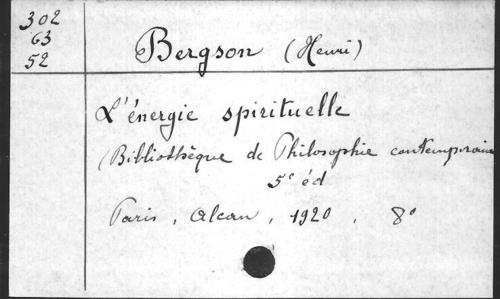 302
63
52
Bergson (Henri)
L'énergie spirituelle
(Bibliothèque de Philosophie contemporaine
5e éd
Paris, Alcan, 1920, 8°